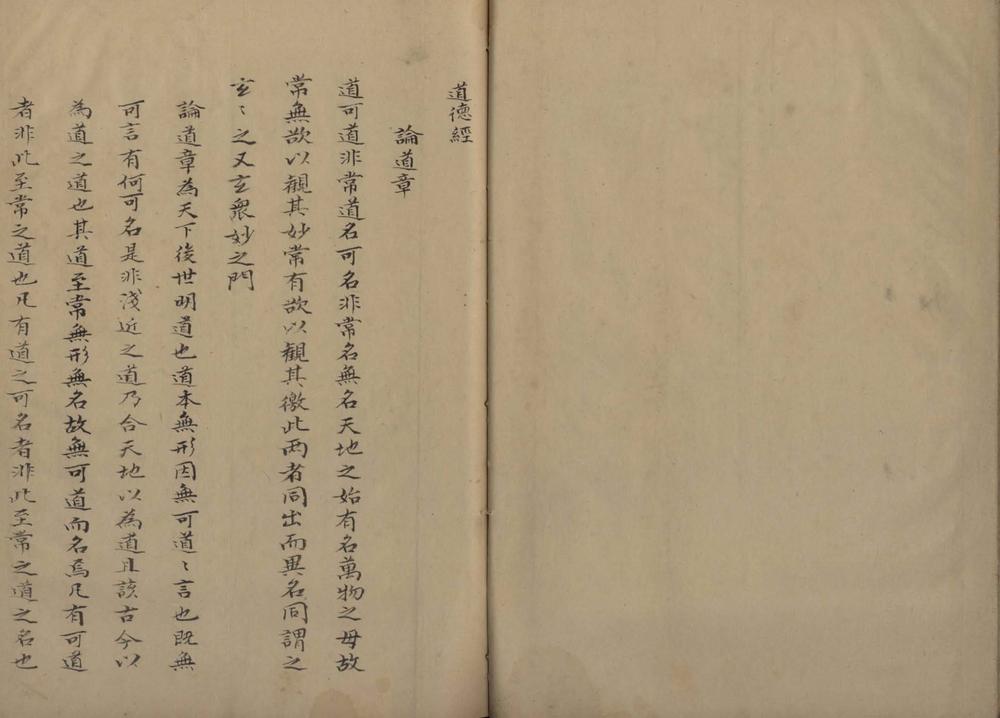 道德經
論道章
道可道非常道名可名非常名無名天地之始有名萬物之母故
常無欲以觀其妙常有欲以觀其徼此兩者同出而異名同謂之
玄〻之又玄衆妙之門
論道章為天下後世明道也道本無形因無可道〻言也既無
可言有何可名是非淺近之道乃合天地以為道且該古今以
為道之道也其道至常無形無名故無可道而名焉凡有可道
者非此至常之道也凡有道之可名者非此至常之道之名也